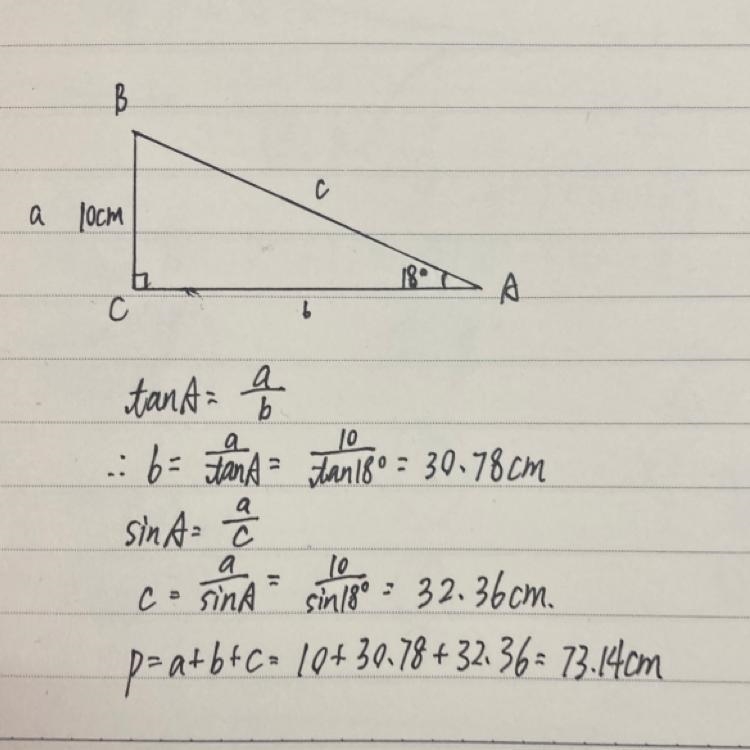 B
c
a 10cm
18°
A
C
b
tanA = a/b
∴ b = a/tanA = 10/tan18° = 30.78cm
sinA = a/c
c = a/sinA = 10/sin18° = 32.36cm.
p=a+b+c= 10+30.78+32.36= 73.14cm